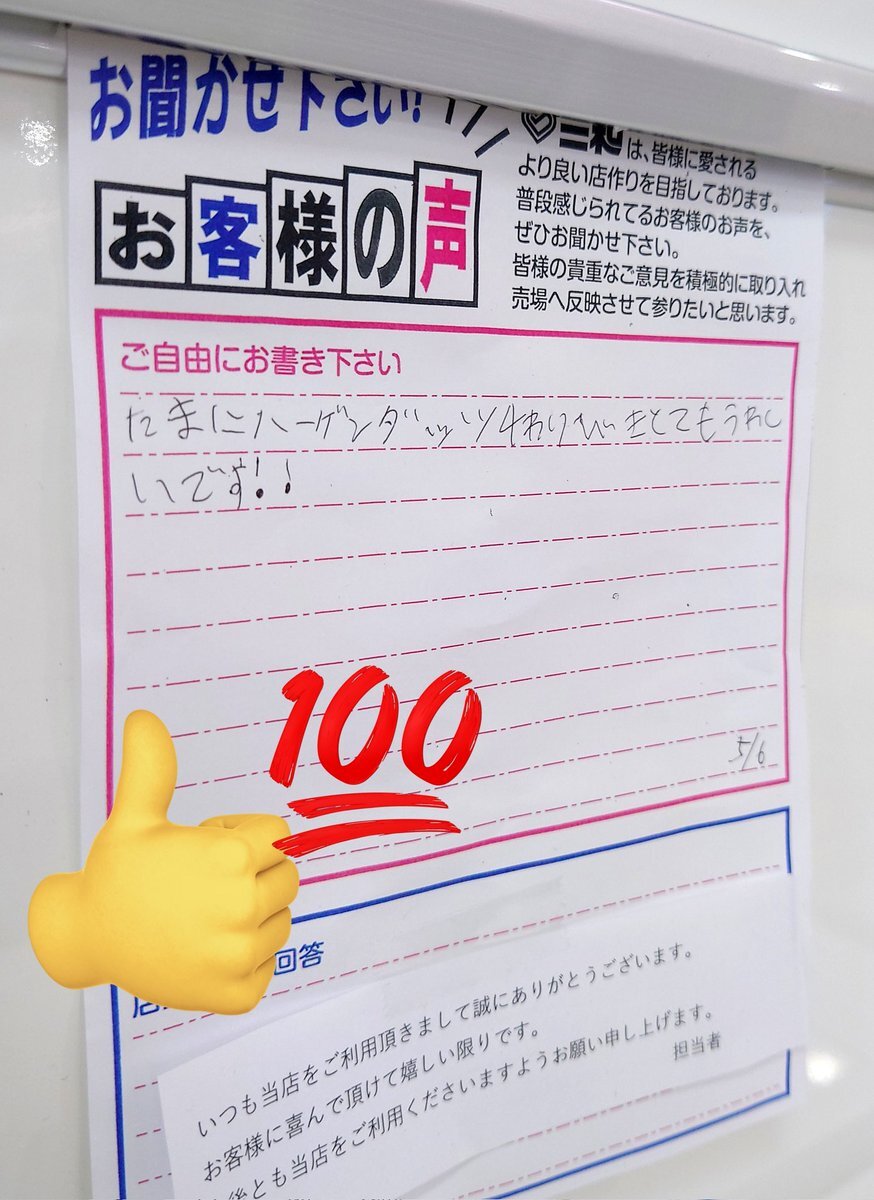 お聞かせ下さい!
は、皆様に愛される
より良い店作りを目指しております。
普段感じられてるお客様のお声を、
ぜひお聞かせ下さい。
皆様の貴重なご意見を積極的に取り入れ
売場へ反映させて参りたいと思います。
お客様の声
ご自由にお書き下さい
たまにハーゲンダッツ4わりびきとてもうれし
いです!!
100
5/6
店
回答
いつも当店をご利用頂きまして誠にありがとうございます。
お客様に喜んで頂けて嬉しい限りです。
後とも当店をご利用くださいますようお願い申し上げます。
担当者